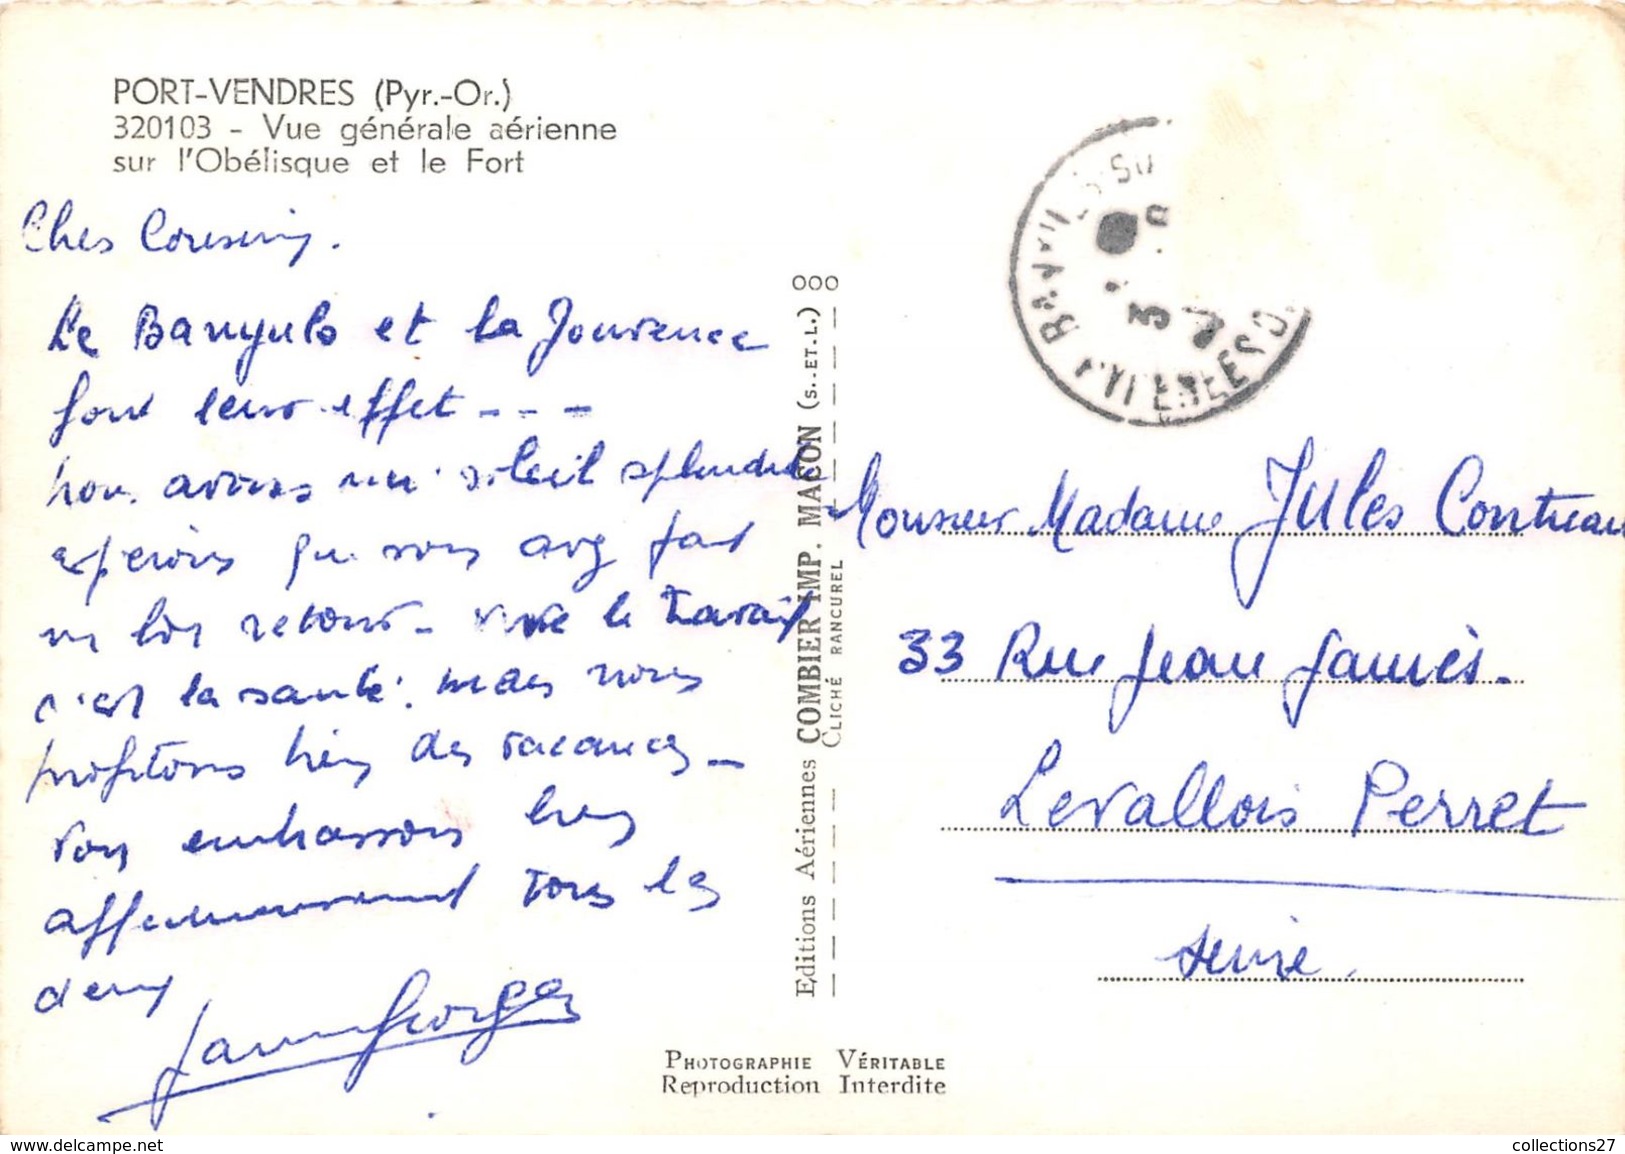 PORT-VENDRES (Pyr.-Or.)
320103 - Vue générale aérienne
sur l'Obélisque et le Fort
Chers Cousins.
Le Banyuls et la Jouvence
font leur effet - - -
nous avons un soleil splendide
espérons que vous avez fait
un bon retour - vive le travail
c'est la santé. mais nous
profitons bien des vacances -
vous embrassons bien
affectueusement tous les
deux
Georges
OOO
Editions Aériennes COMBIER IMP. MACON (S.-ET-L.)
CLICHÉ RANCUREL
PHOTOGRAPHIE VÉRITABLE
Reproduction Interdite
PYRENEES O.
Monsieur Madame Jules Contreau
33 Rue Jean Jaurès.
Levallois Perret
Seine
www.delcampe.net
collections27